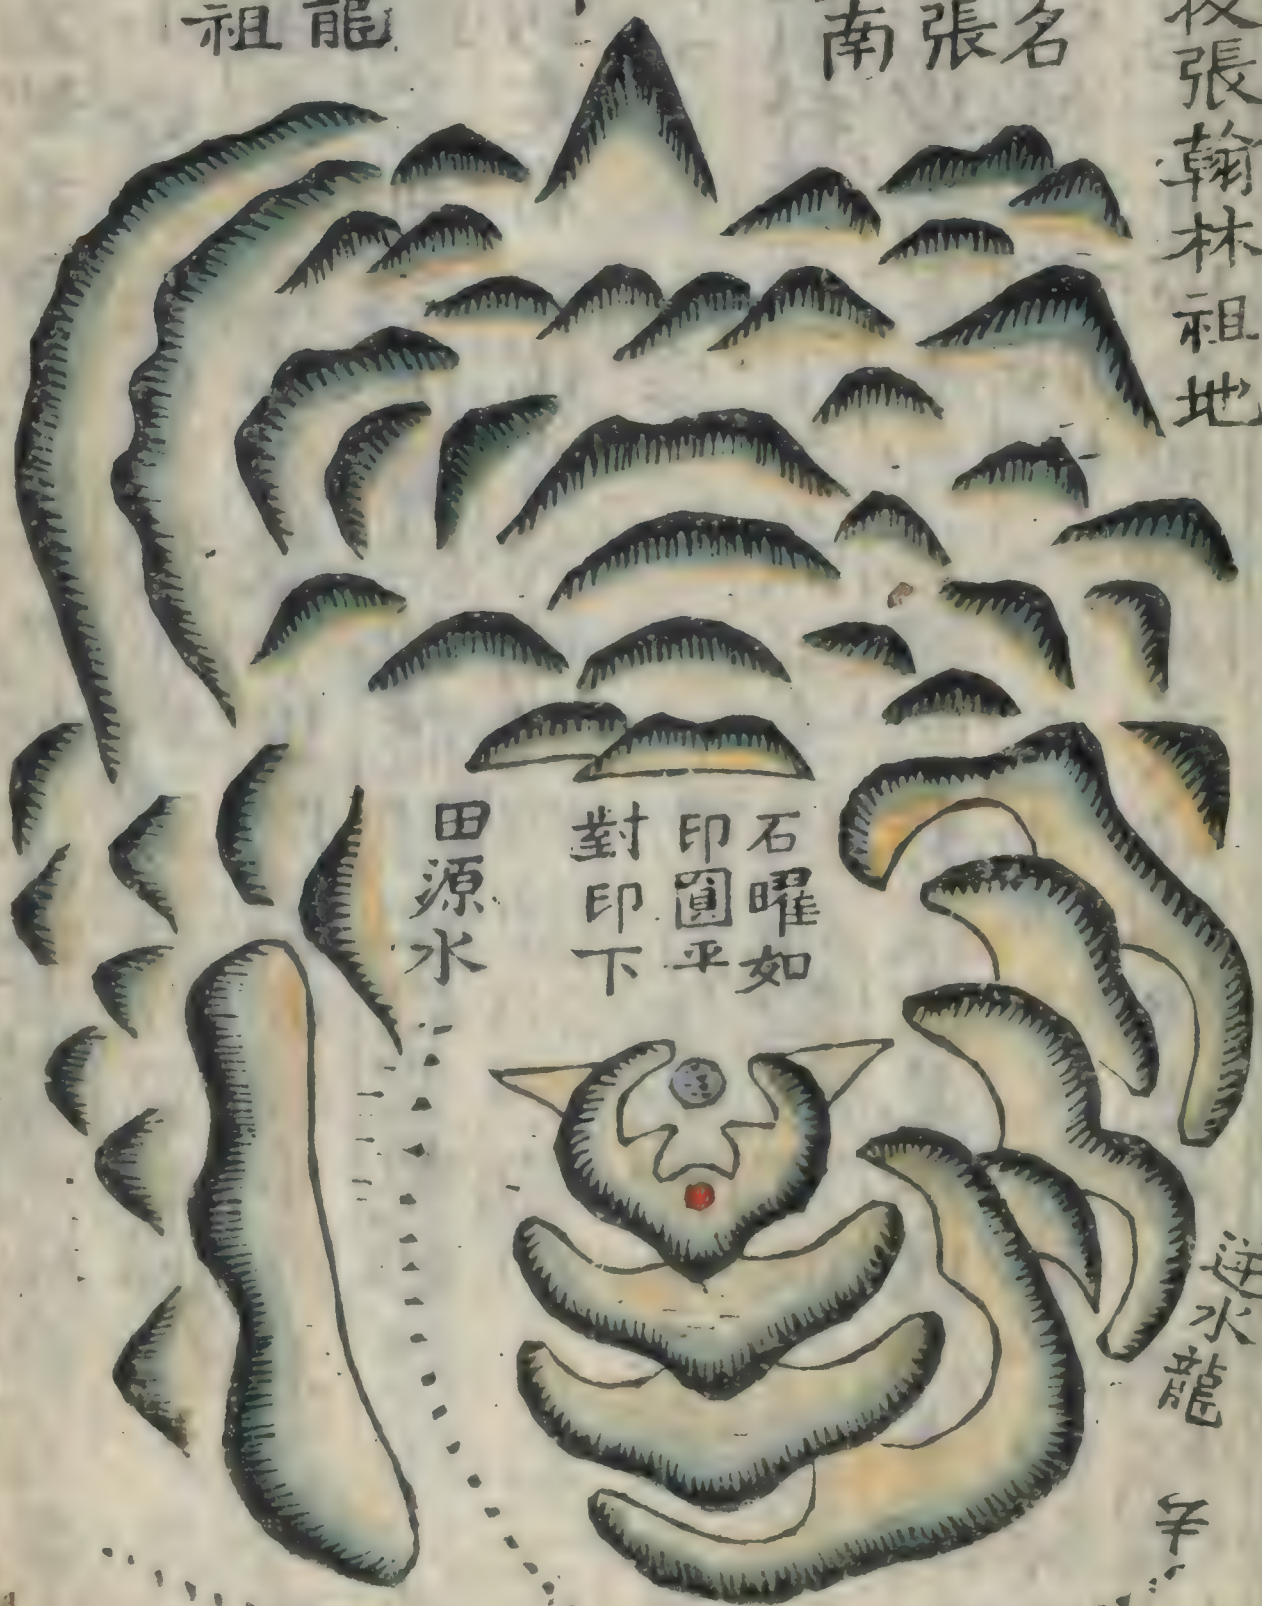 張翰林祖地
名
張
南
龍
祖
石曜如
印圓平
對印下
田源水
逆水龍